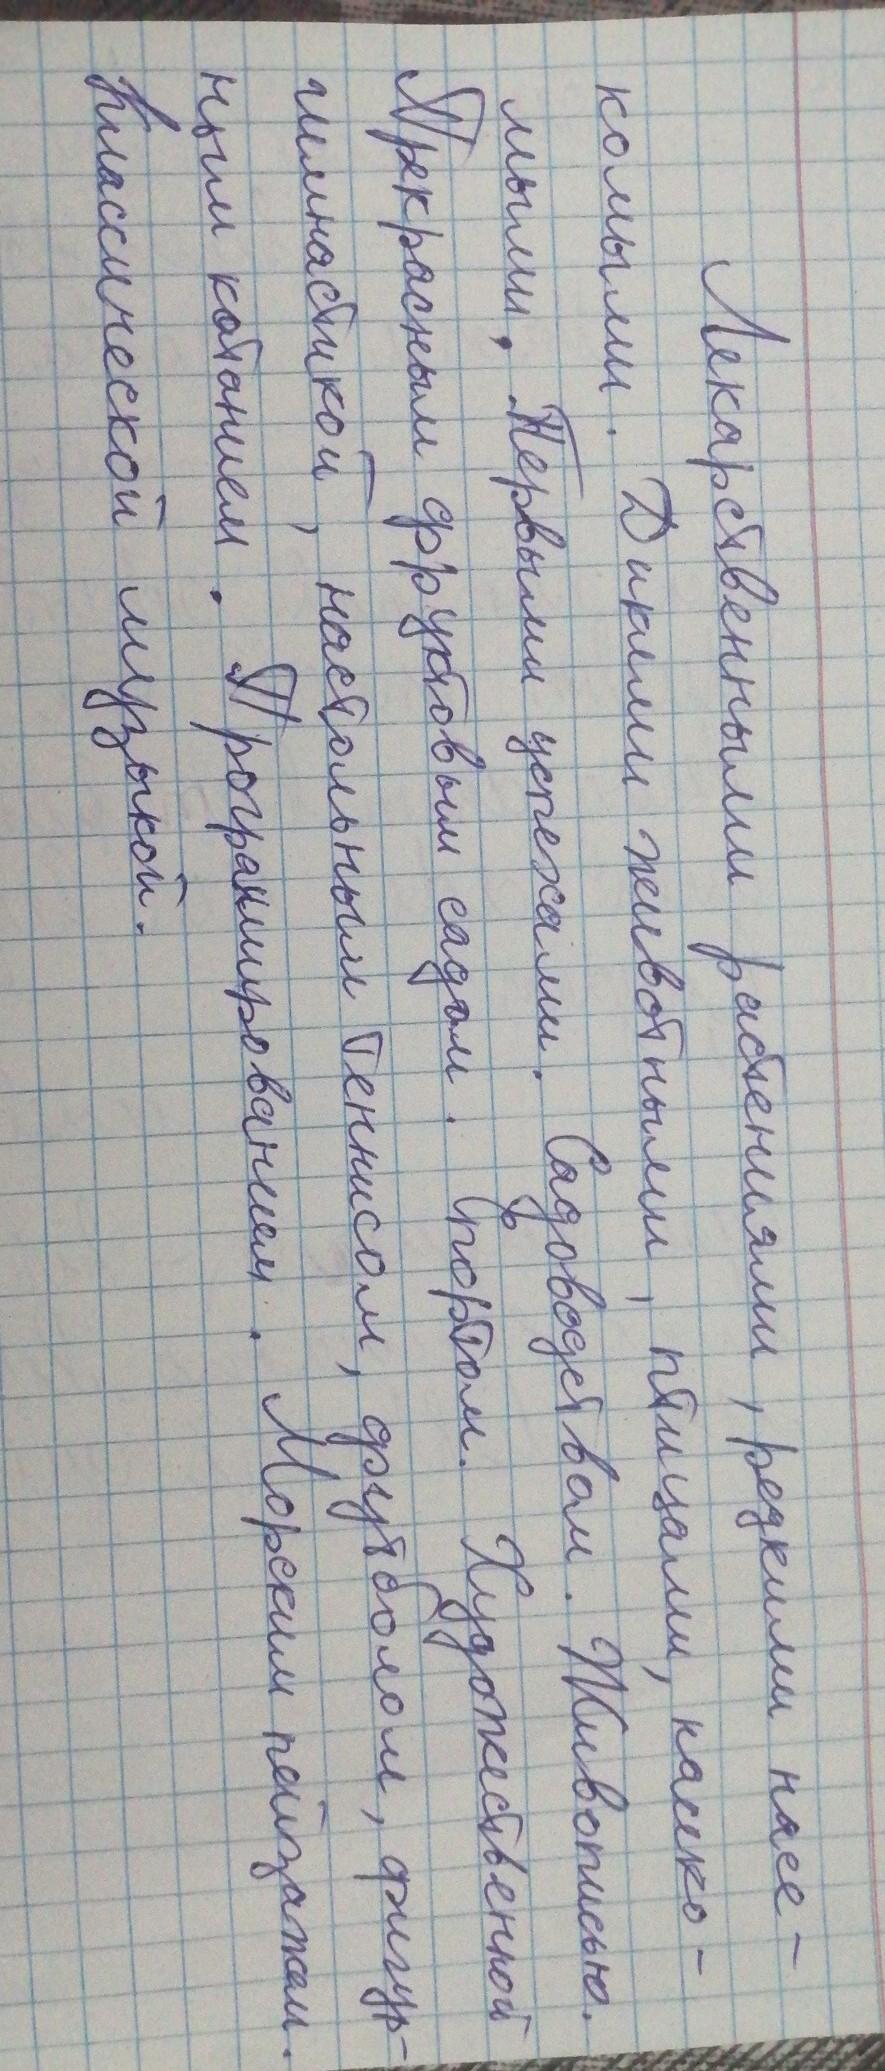 Лекарственными растениями, редкими насе-
комыми. Дикими животными, птицами, насеко-
мыми. Первыми успехами. Садоводством. Живописью.
Прекрасным фруктовым садом. Спортом. Художественной
гимнастикой, настольным теннисом, футболом, фигур-
ным катанием. Програмированием. Морским пейзажем.
Классической музыкой.